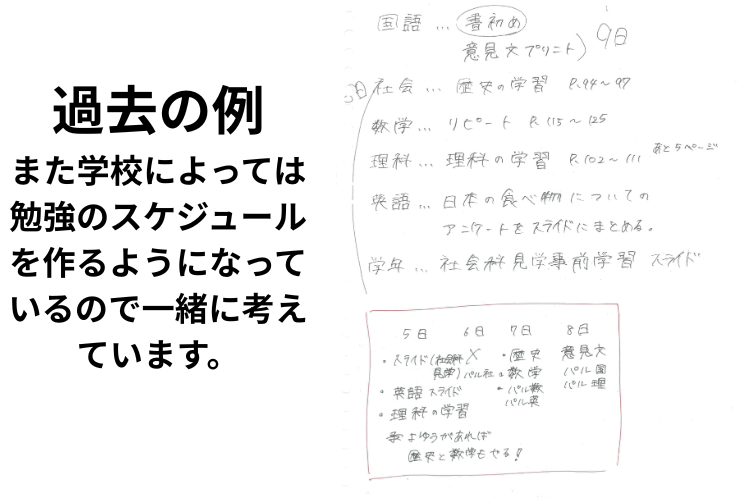 過去の例
また学校によっては
勉強のスケジュール
を作るようになって
いるので一緒に考え
ています。
国語 … 書初め
意見文プリント) 9日
日
社会 … 歴史の学習 P.94〜97
数学 … リピート P.115〜125
理科 … 理科の学習 P.102〜111 あと5ページ
英語 … 日本の食べ物についての
アンケートをスライドにまとめる。
学年 … 社会科見学事前学習 スライド
5日 6日 7日 8日
・スライド(社会科 X ・歴史 意見文
見学) パル社 ・数学 パル国
・英語 スライド ・パル数 パル理
パル英
・理科の学習
よゆうがあれば
歴史と数学もやる!